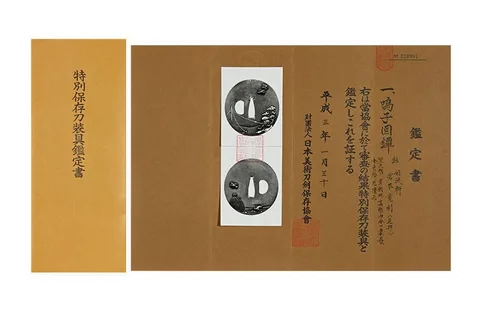 特別保存刀装具鑑定書
鑑定書
一、鳴子図鐔
右は當協會に於て審査の結果特別保存刀装具と
鑑定しこれを証する
平成三年一月三十日
財團法人日本美術刀劍保存協會